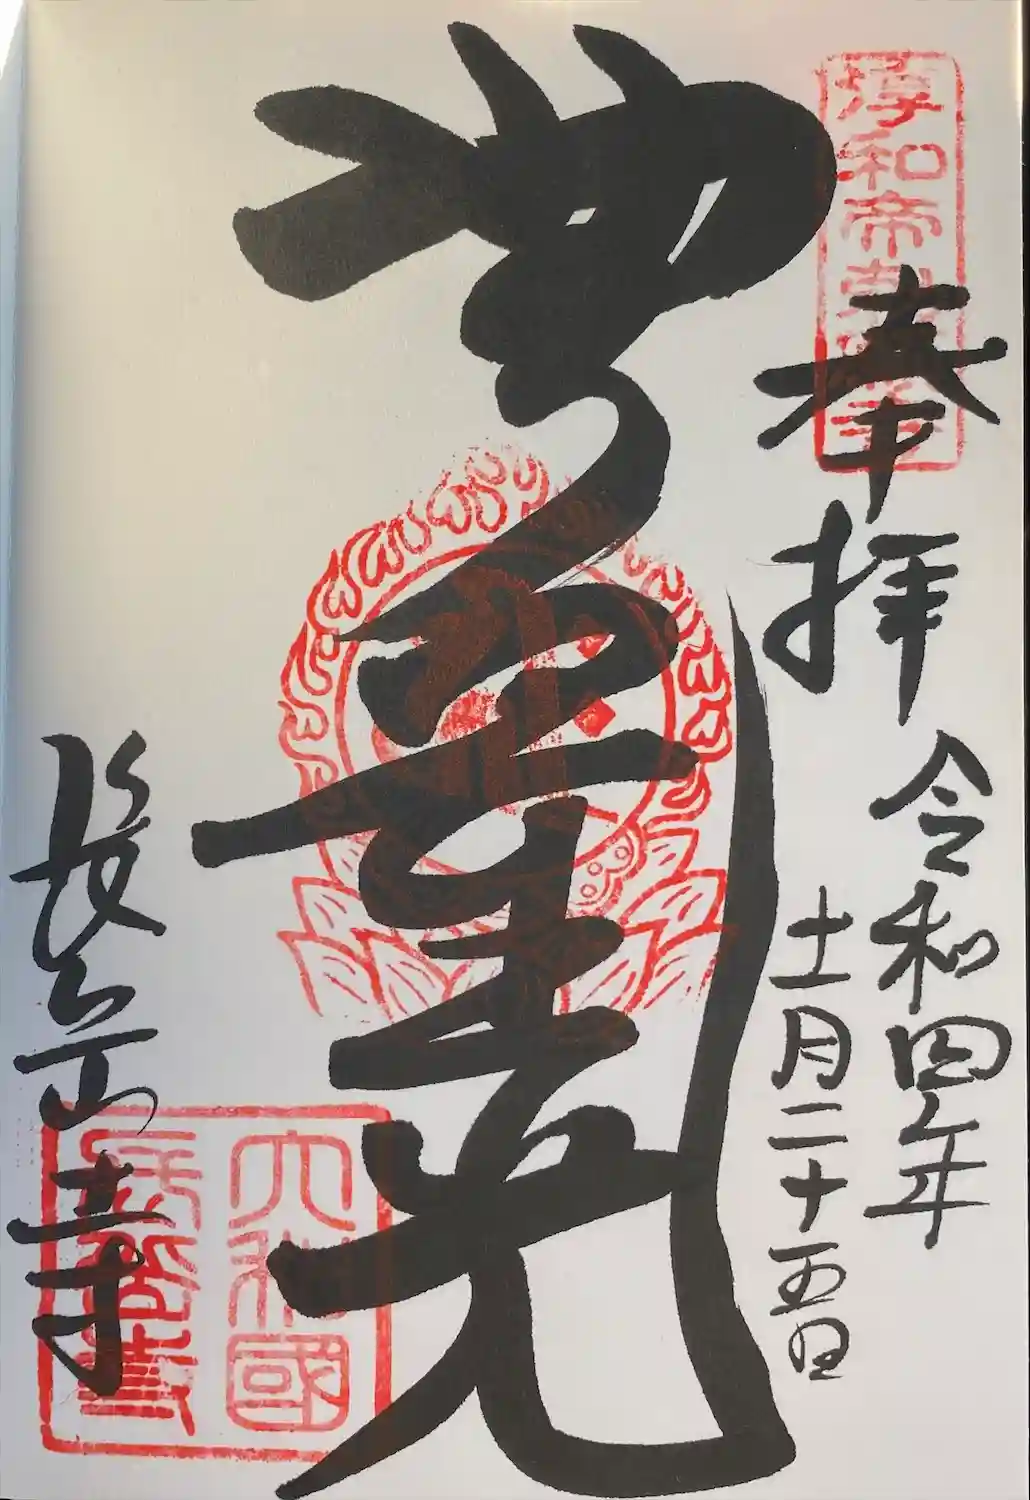 奉拝
令和四年
十一月二十五日
無量光
長岳寺
淳和帝勅
大和國
長岳寺